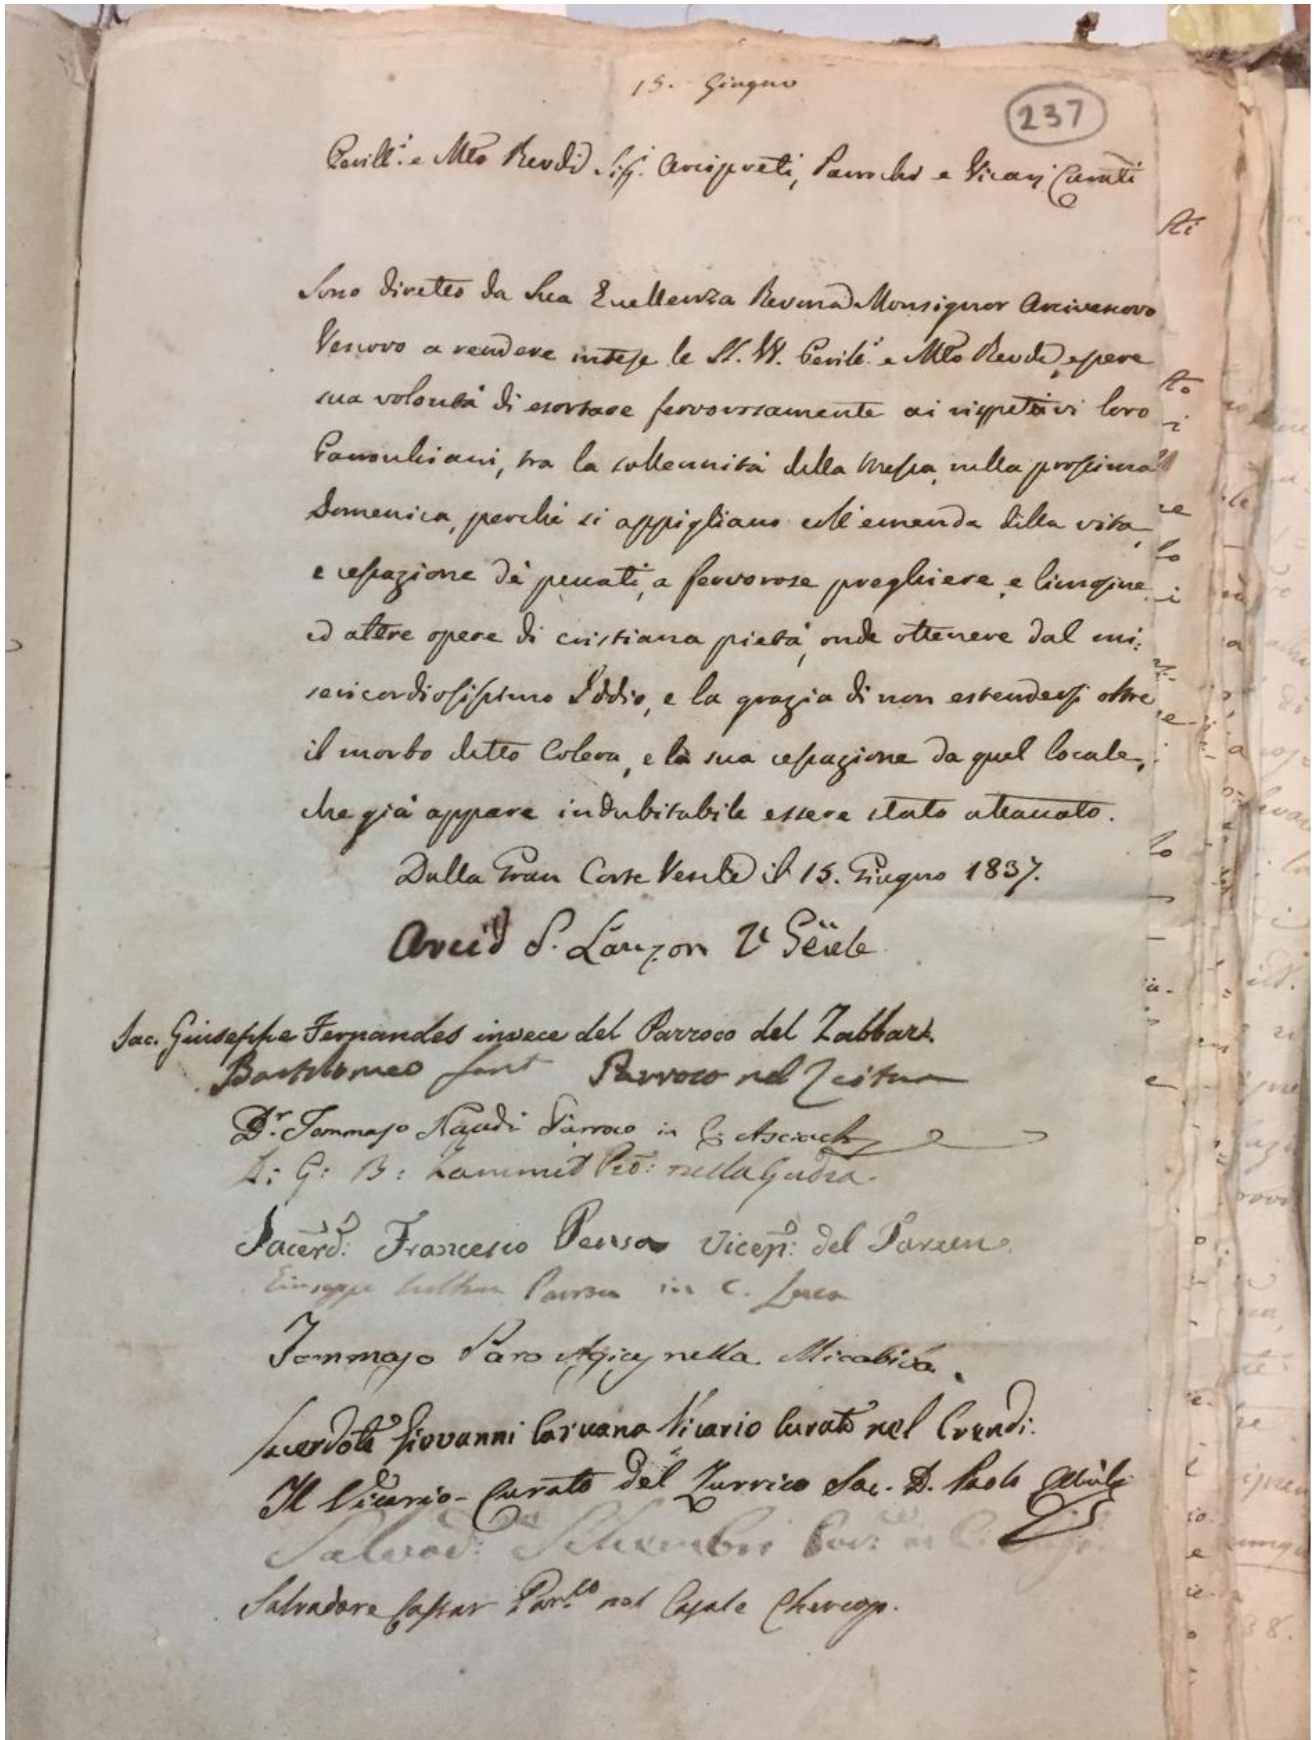 15. Giugno
237
Gentill.i e Mto Revdi Sigi. Arcipreti, Parrochi e Vicarj Curati
Sono diretto da Sua Eccellenza Revma Monsignor Arcivescovo
Vescovo a rendere intese le SS. VV. Gentil.i e Mto Revde, essere
sua volontà di esortare fervorosamente ai rispettivi loro
Parrochiani, tra la sollennità della Messa, nella prossima
Domenica, perchè si appigliano coll'emenda della vita,
e cessazione dè peccati, a fervorose preghiere, e limosine
ed altre opere di cristiana pietà, onde ottenere dal mi:
sericordiosissimo Iddio, e la grazia di non estendersi oltre
il morbo detto Colera, e la sua cessazione da quel locale,
che già appare indubitabile essere stato attaccato.
Dalla Gran Corte Vescle il 15. Giugno 1837.
Arcid S. Lanzon Vc Gēnle
Sac. Giuseppe Fernandes invece del Parroco del Zabbar.
Bartolomeo Parroco nel Zeitun
Dr. Tommaso Naudi Parroco in C. Asciach
D: G: B: Zammit Pro: nella Gudia.
Sacerd: Francesco Penza Vicep: del Tarxen.
Giuseppe Parroco in C. Luca
Tommaso Paro nella Micabiba.
Sacerdote Giovanni Caruana Vicario Curato nel Crendi.
Il Vicario-Curato del Zurrico Sac. D. Paolo
Salvad: Schembri
Salvadore Cassar Par.co nel Casale Chercop.